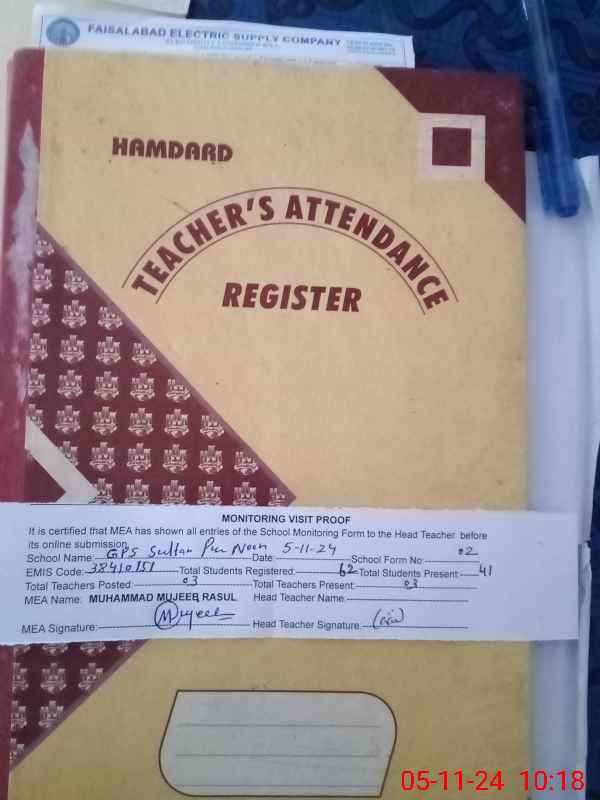 FAISALABAD ELECTRIC SUPPLY COMPANY
ELECTRICITY CONSUMER BILL
HAMDARD
TEACHER'S ATTENDANCE
REGISTER
MONITORING VISIT PROOF
It is certified that MEA has shown all entries of the School Monitoring Form to the Head Teacher before
its online submission
School Name: GPS Sultan Pur Noon Date: 5-11-24 School Form No: 02
EMIS Code: 38410151 Total Students Registered: 62 Total Students Present: 41
Total Teachers Posted: 03 Total Teachers Present: 03
MEA Name: MUHAMMAD MUJEEB RASUL Head Teacher Name:
MEA Signature: Mujeeb Head Teacher Signature:
05-11-24 10:18